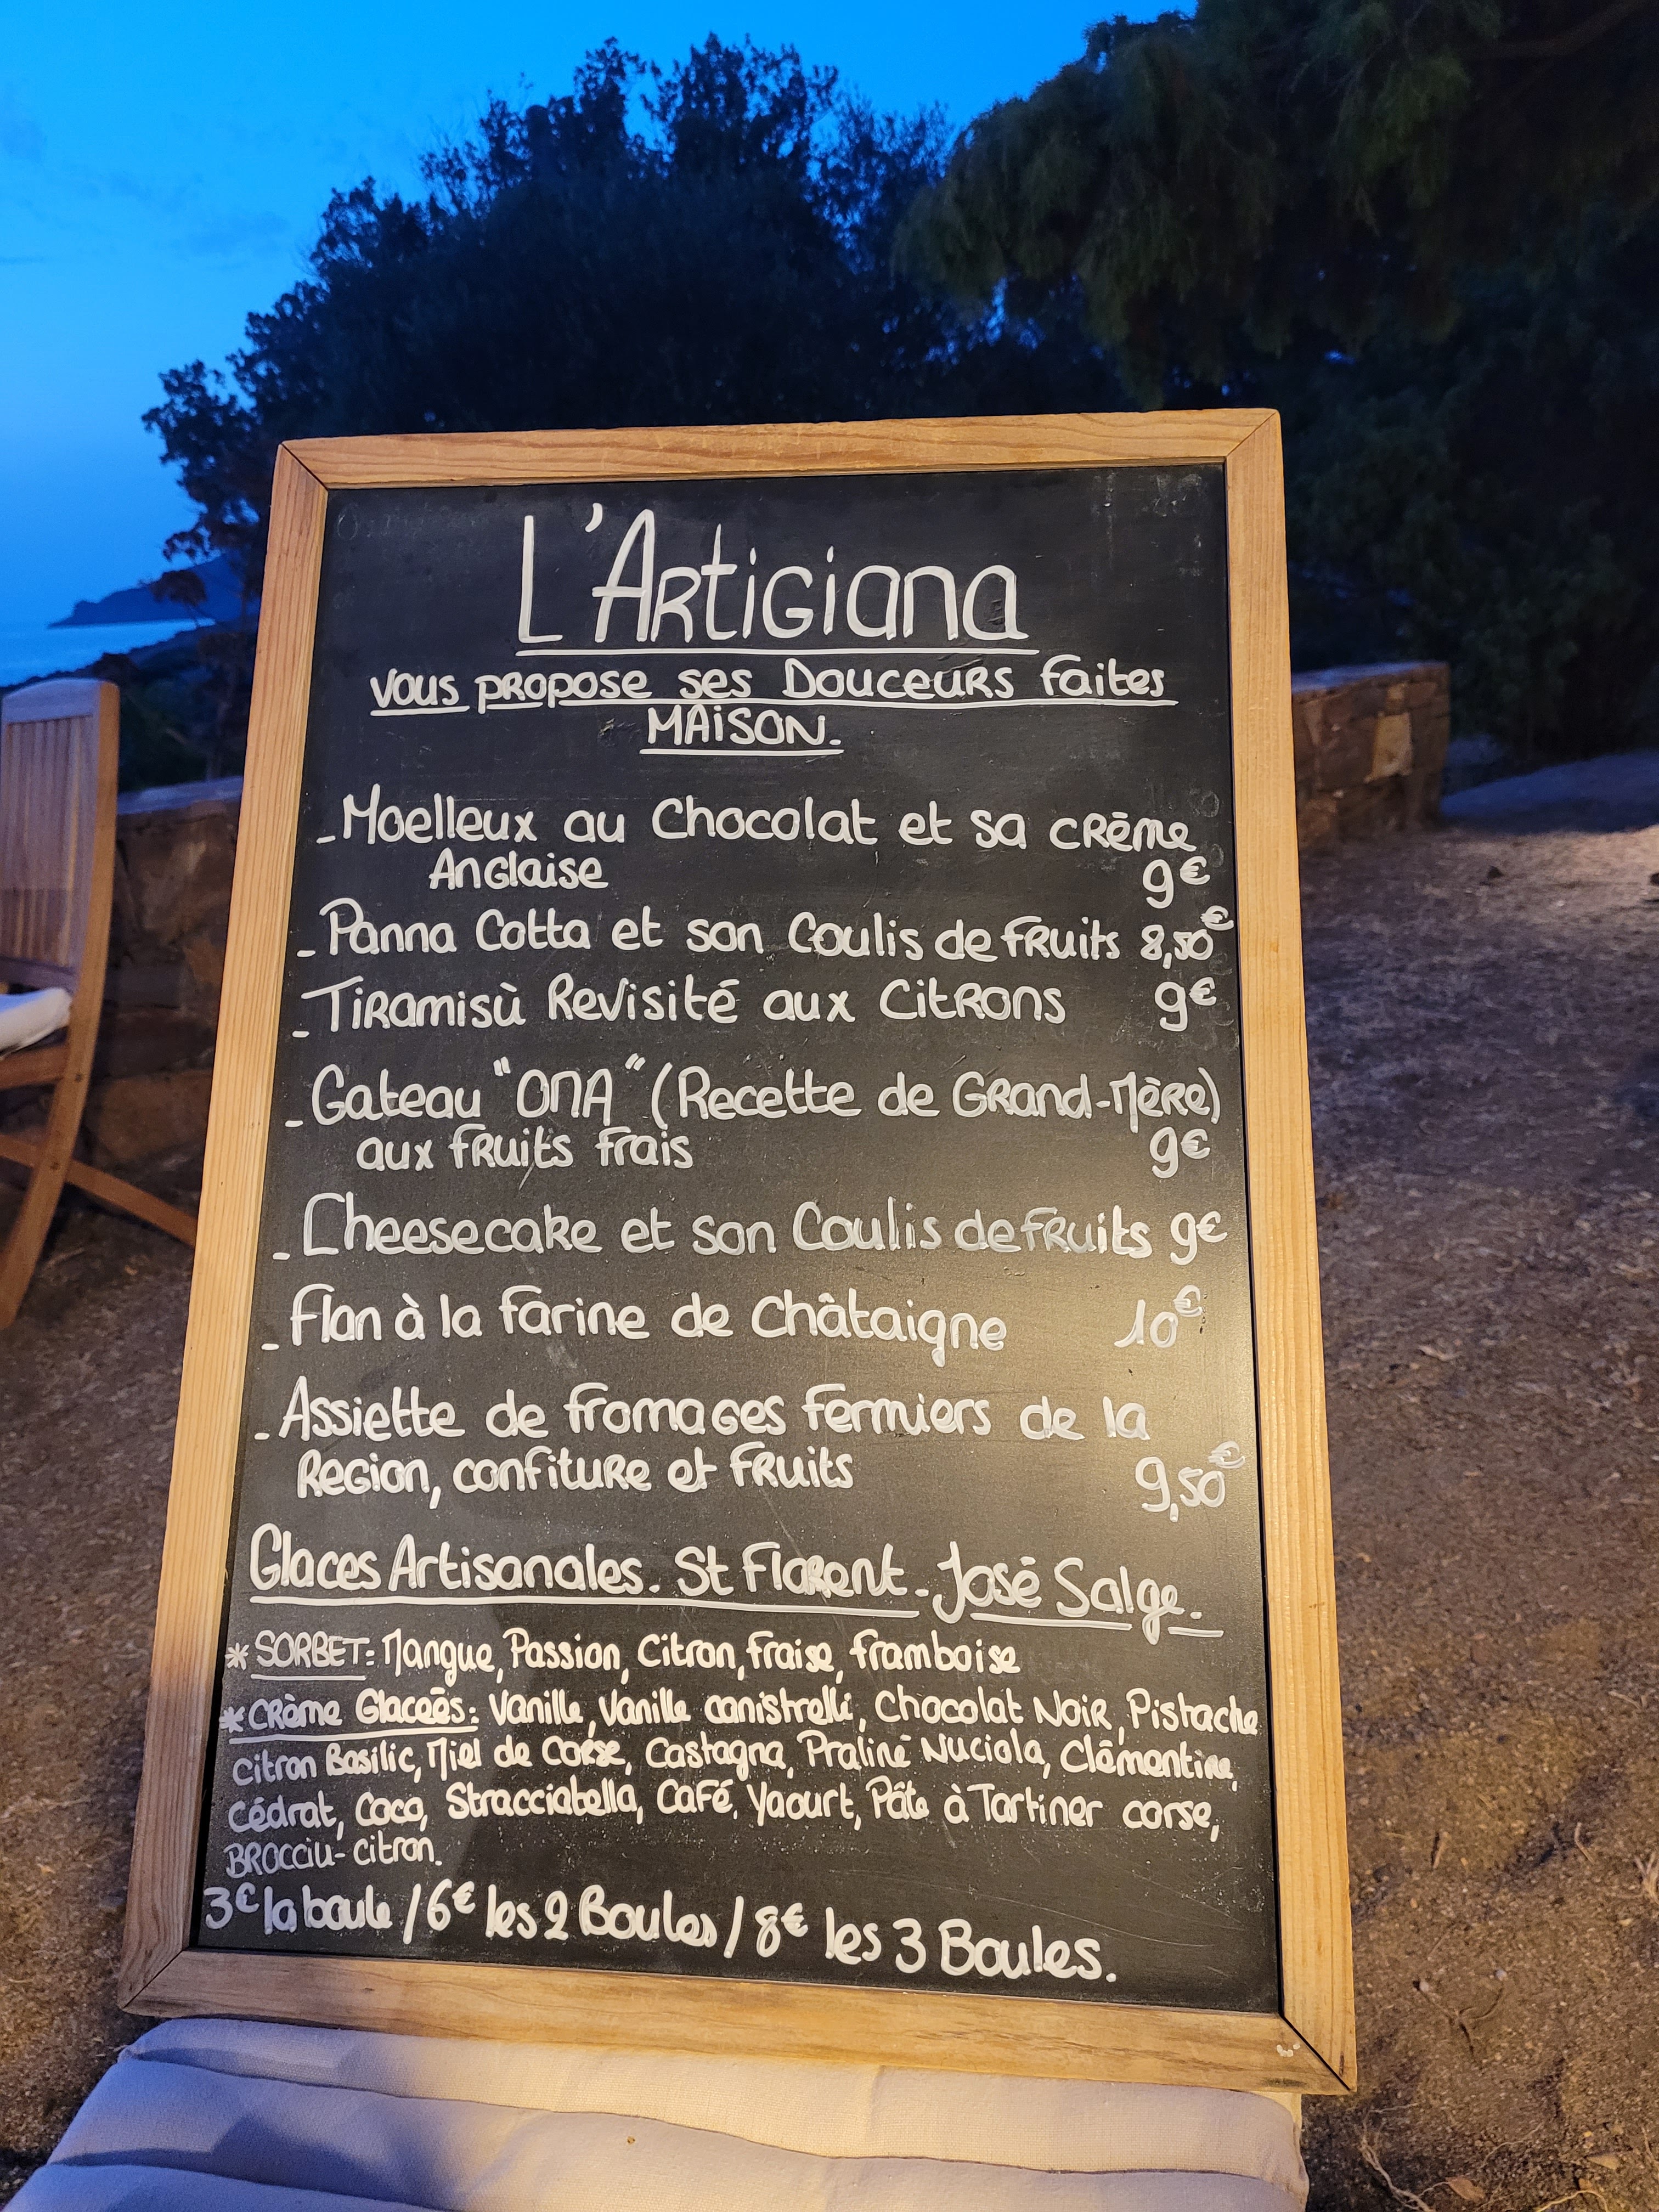 L'Artigiana
vous propose ses Douceurs faites
MAISON.
- Moelleux au Chocolat et sa crème
Anglaise 9€
- Panna Cotta et son Coulis de fruits 8,50€
- Tiramisù Revisité aux Citrons 9€
- Gateau "ONA" (Recette de Grand-Mère)
aux fruits frais 9€
- Cheesecake et son Coulis de fruits 9€
- Flan à la farine de Châtaigne 10€
- Assiette de fromages fermiers de la
Region, confiture et fruits 9,50€
Glaces Artisanales. St Florent - José Salge.
* SORBET: Mangue, Passion, Citron, fraise, framboise
* Crème Glaceés: Vanille, Vanille canistrelli, Chocolat Noir, Pistache
citron Basilic, Miel de Corse, Castagna, Praliné Nuciola, Clémentine,
Cédrat, Coco, Stracciatella, Café, Yaourt, Pâte à Tartiner corse,
BROCCIU-citron.
3€ la boule / 6€ les 2 Boules / 8€ les 3 Boules.